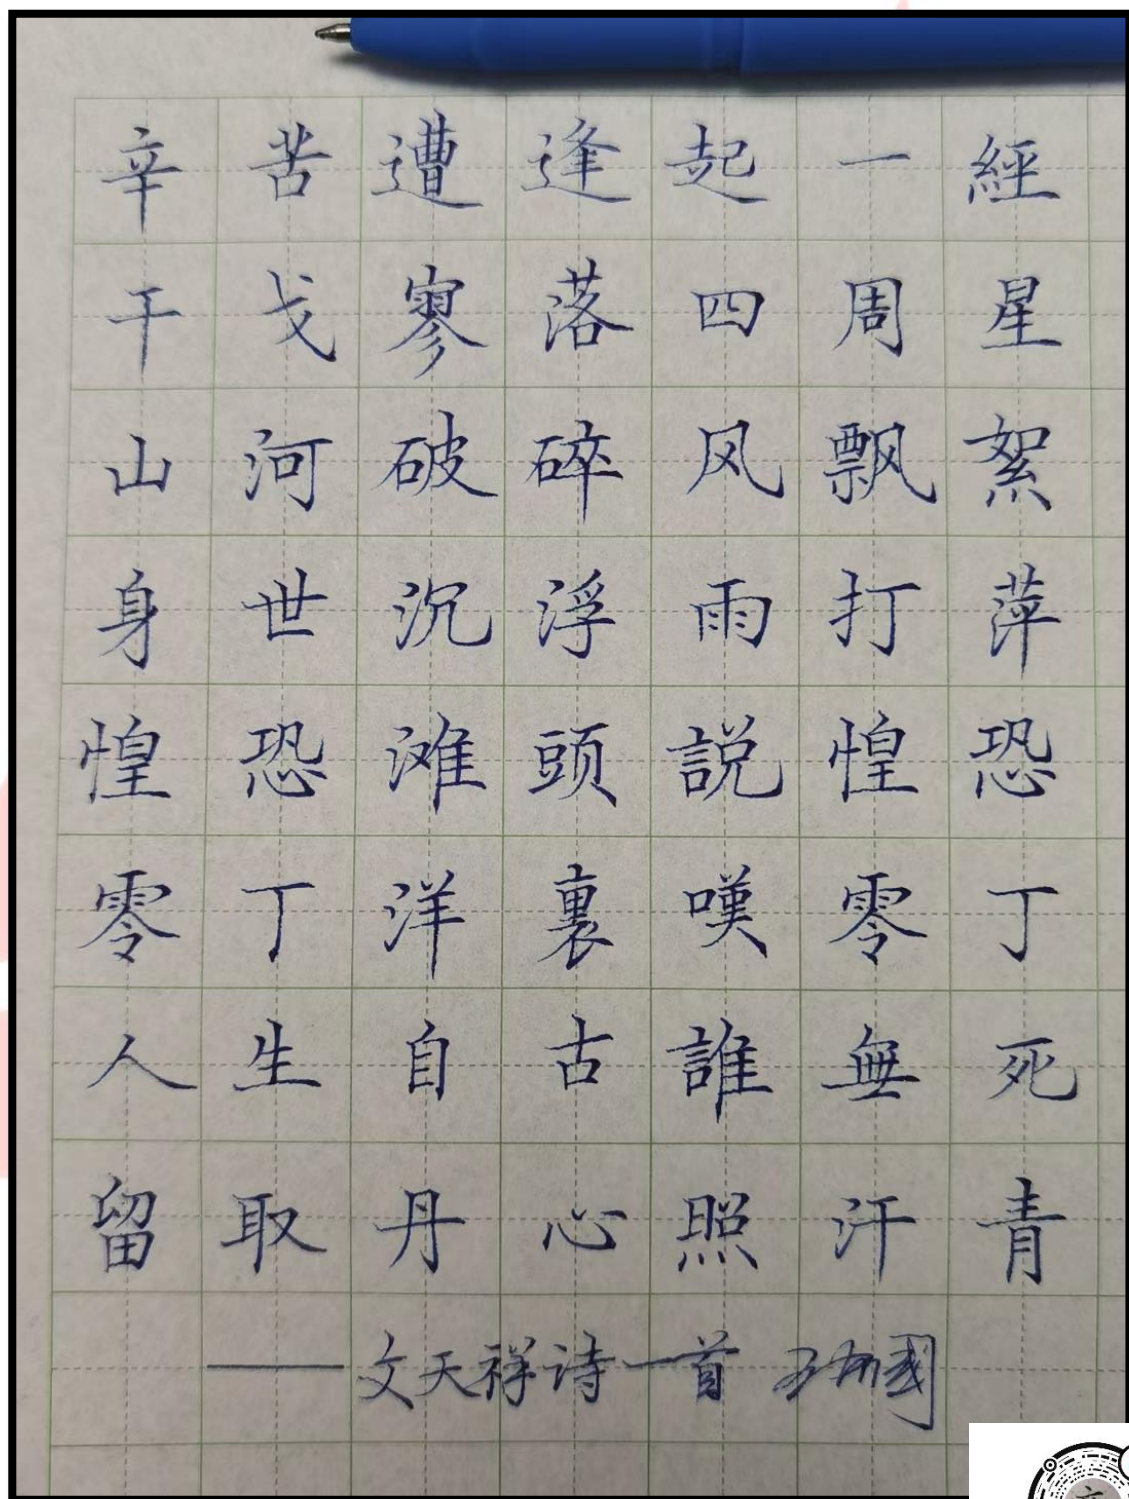 辛苦遭逢起一經
干戈寥落四周星
山河破碎风飘絮
身世沉浮雨打萍
惶恐滩頭説惶恐
零丁洋裏嘆零丁
人生自古誰無死
留取丹心照汗青
——文天祥诗一首